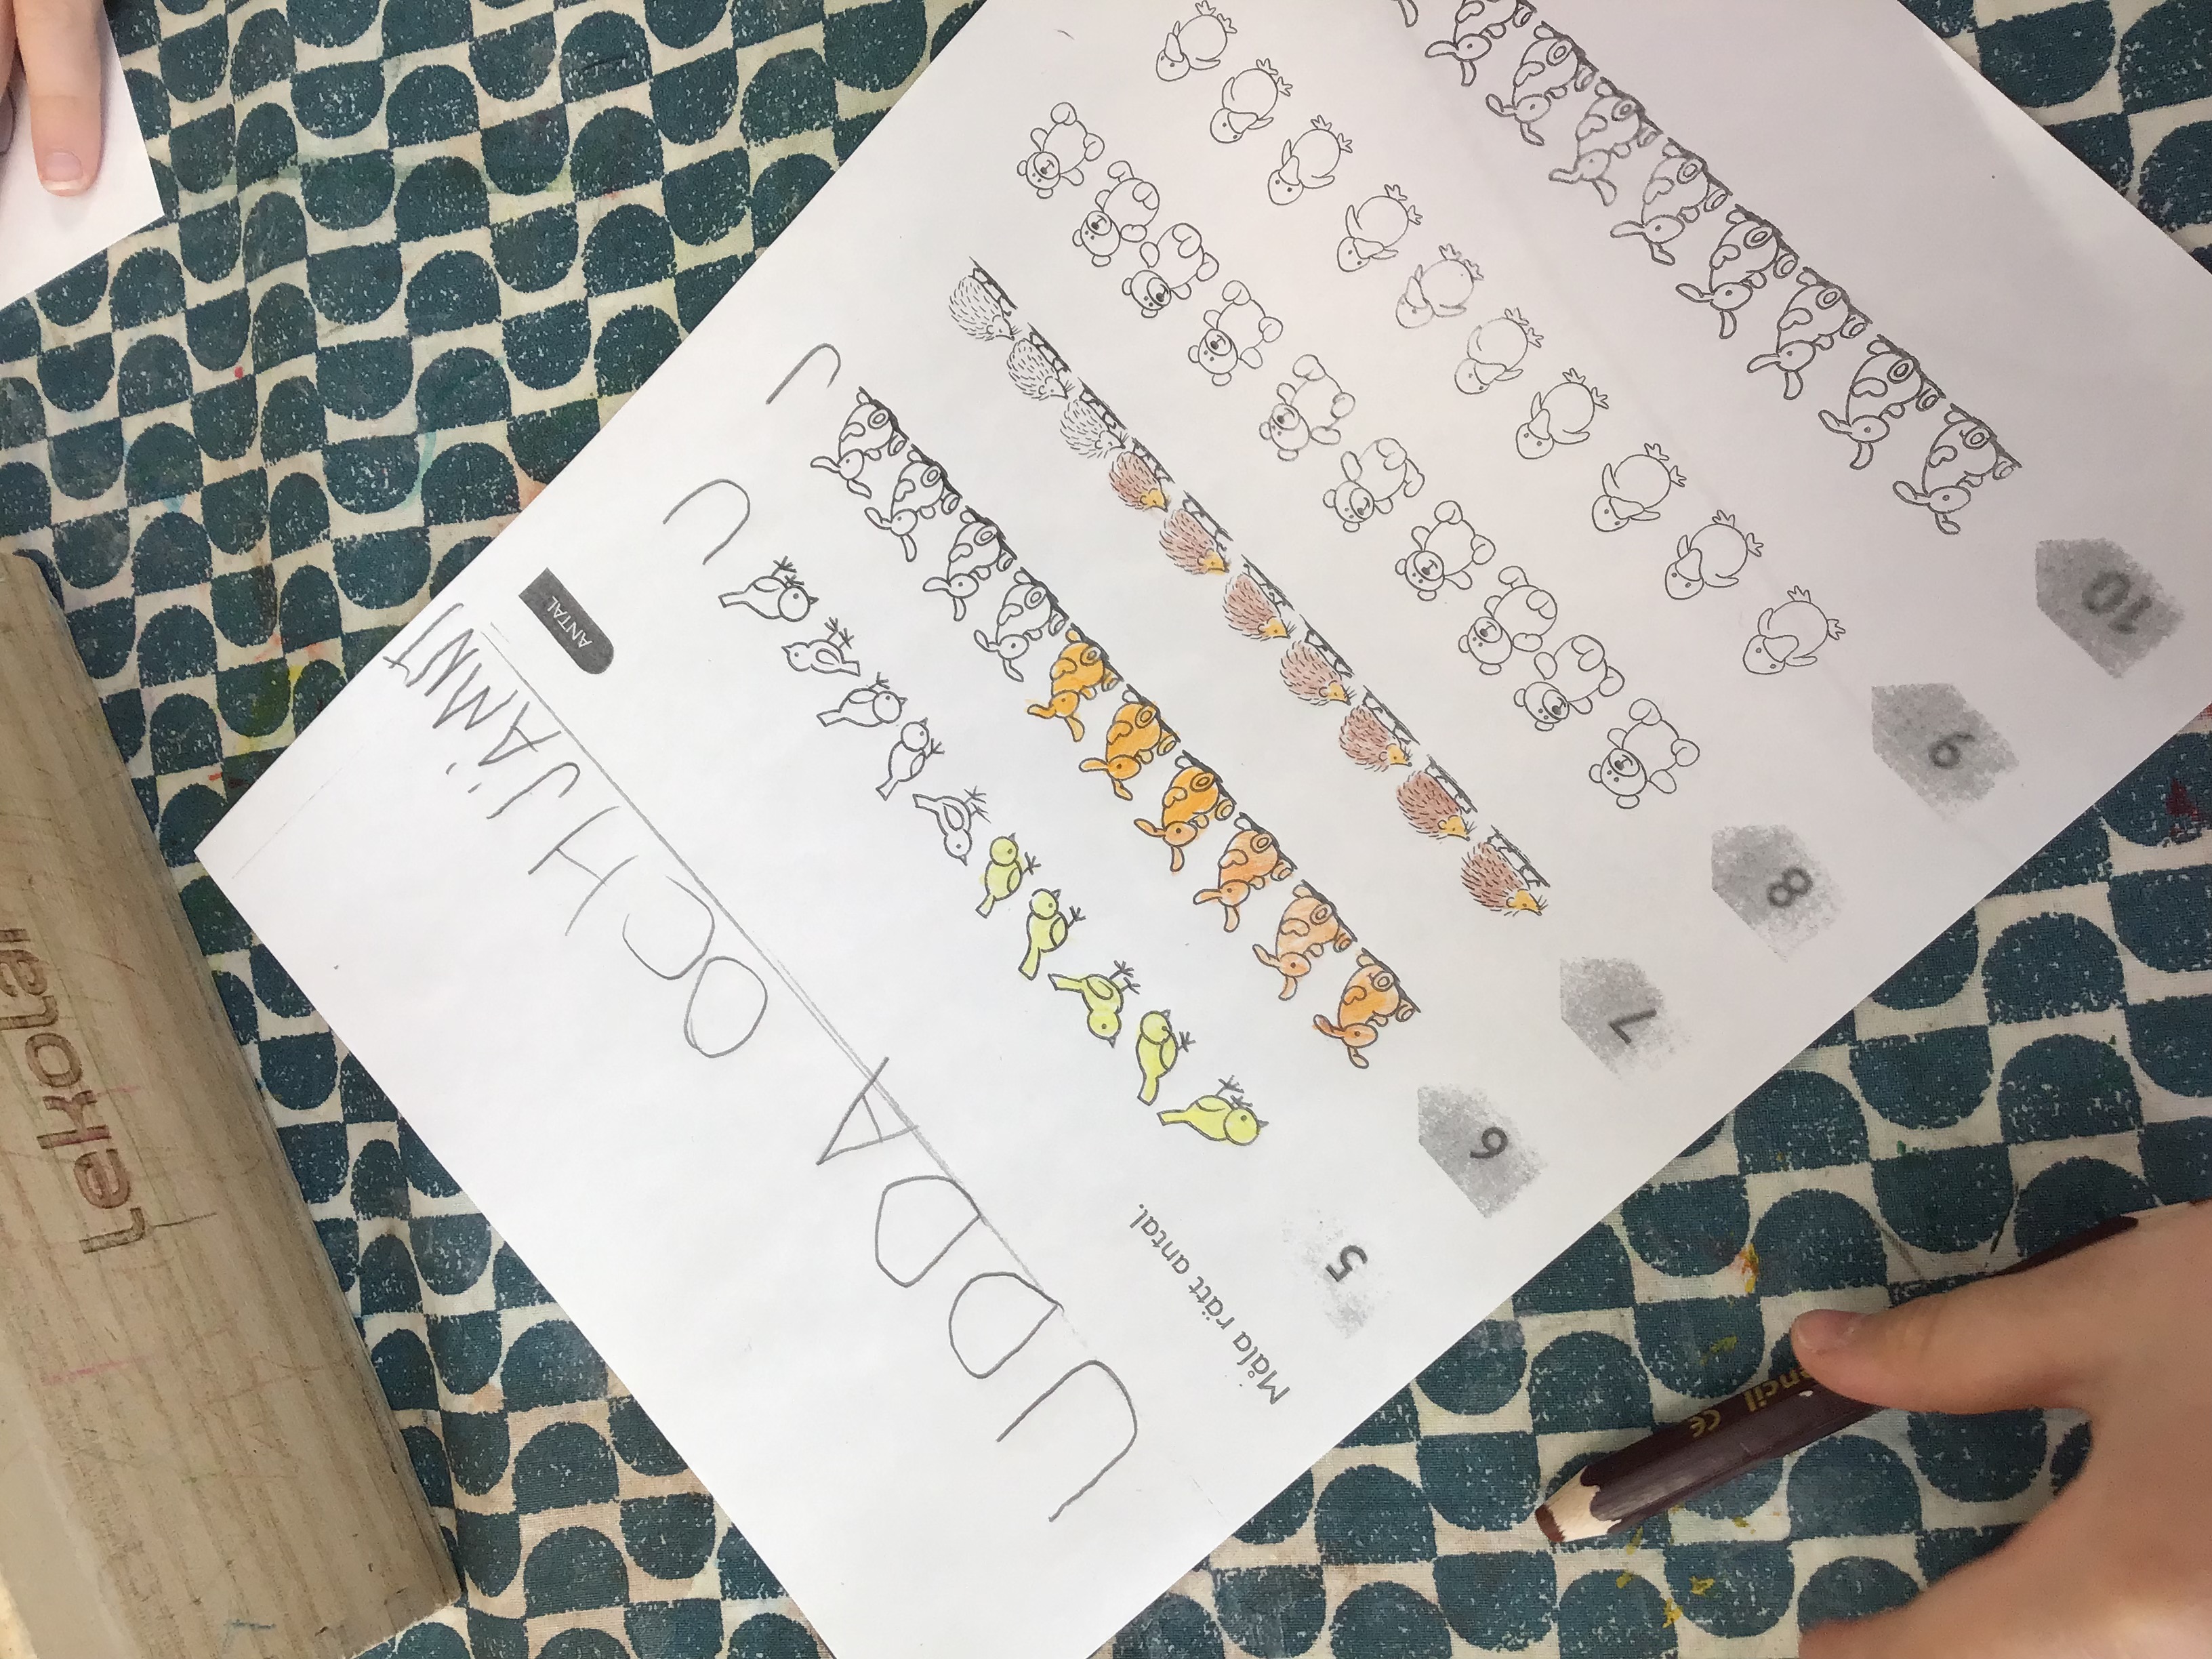 UDDA OCH JÄMNT
ANTAL
Måla rätt antal.
5
U
6
J
7
8
9
10
Lekolar
encil CE